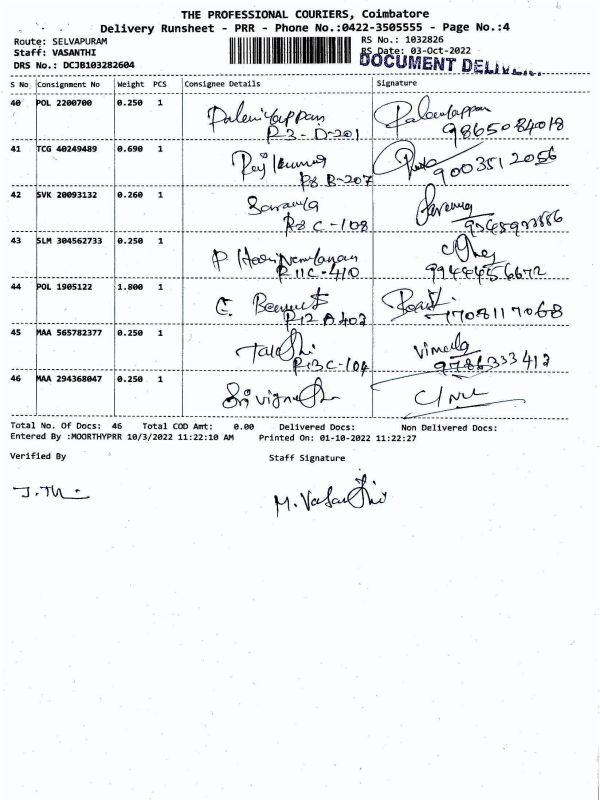 THE PROFESSIONAL COURIERS, Coimbatore
Delivery Runsheet - PRR - Phone No.:0422-3505555 - Page No.:4
Route: SELVAPURAM RS No.: 1032826
Staff: VASANTHI RS Date: 03-Oct-2022
DRS No.: DCJB103282604 DOCUMENT
S No Consignment No Weight PCS Consignee Details Signature
40 POL 2200700 0.250 1 Palaniyappan Palaniyappan
R3-D-201 9865084018
41 TCG 40249489 0.690 1 Raj kumar
R8 B-207 9003512056
42 SVK 20093132 0.260 1 Saranya
R8 C-108
43 SLM 304562733 0.250 1
R11C-410 9944456672
44 POL 1905122 1.800 1
R12 A 402 7708117068
45 MAA 565782377 0.250 1 Vimala
R13C-104 9786333412
46 MAA 294368047 0.250 1
Total No. Of Docs: 46 Total COD Amt: 0.00 Delivered Docs: Non Delivered Docs:
Entered By :MOORTHYPRR 10/3/2022 11:22:10 AM Printed On: 01-10-2022 11:22:27
Verified By Staff Signature
M. Vasanthi